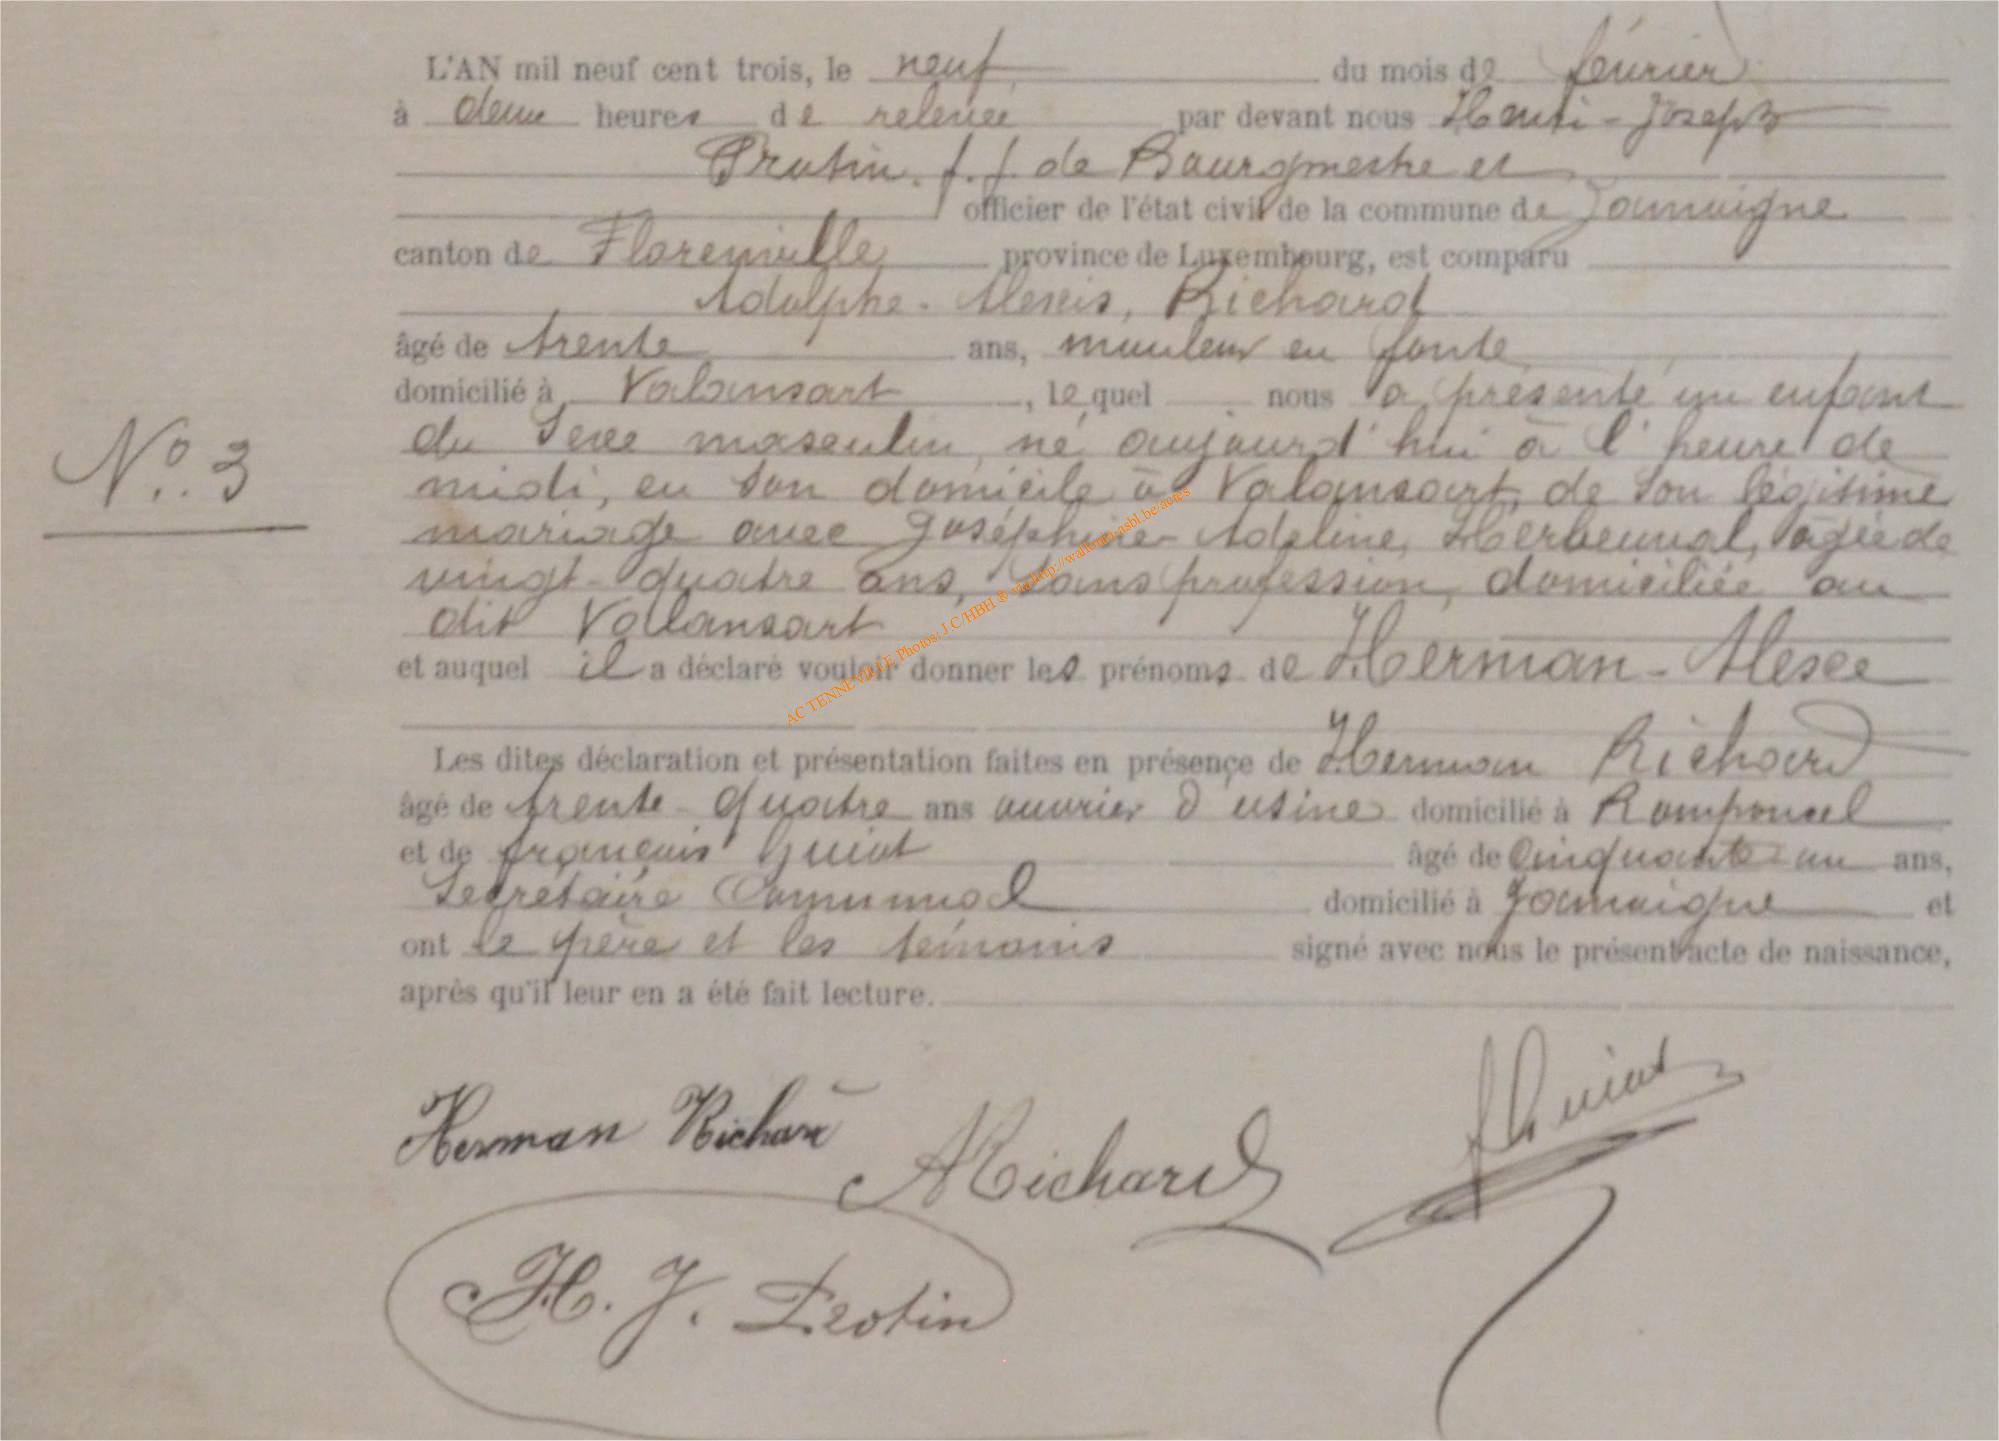 L'AN mil neuf cent trois, le neuf du mois de février
à deux heures de relevée par devant nous Henri-Joseph
Protin. f.f. de Bourgmestre et
officier de l'état civil de la commune de Jamoigne
canton de Florenville province de Luxembourg, est comparu
Adolphe-Alexis, Richard
âgé de trente ans, mouleur en fonte
domicilié à Valansart, lequel nous a présenté un enfant
du Sexe masculin, né aujourd'hui à l'heure de
N° 3
midi, en son domicile à Valansart, de son légitime
mariage avec Joséphine-Adeline, Herbeuval, agée de
vingt-quatre ans, sans profession, domiciliée au
dit Valansart
et auquel il a déclaré vouloir donner les prénoms de Herman-Alexe
AC TENNEVILLE Photos: J C/HBH ® via http://wallonia-asbl.be/actes
Les dites déclaration et présentation faites en présence de Herman Richard
âgé de trente-quatre ans ouvrier d'usine domicilié à Romponcel
et de françois Guiot âgé de cinquante un ans,
Secrétaire Communal domicilié à Jamoigne et
ont le père et les témoins signé avec nous le présent acte de naissance,
après qu'il leur en a été fait lecture.
Herman Richard
ARichard
f Guiot
H. J. Protin